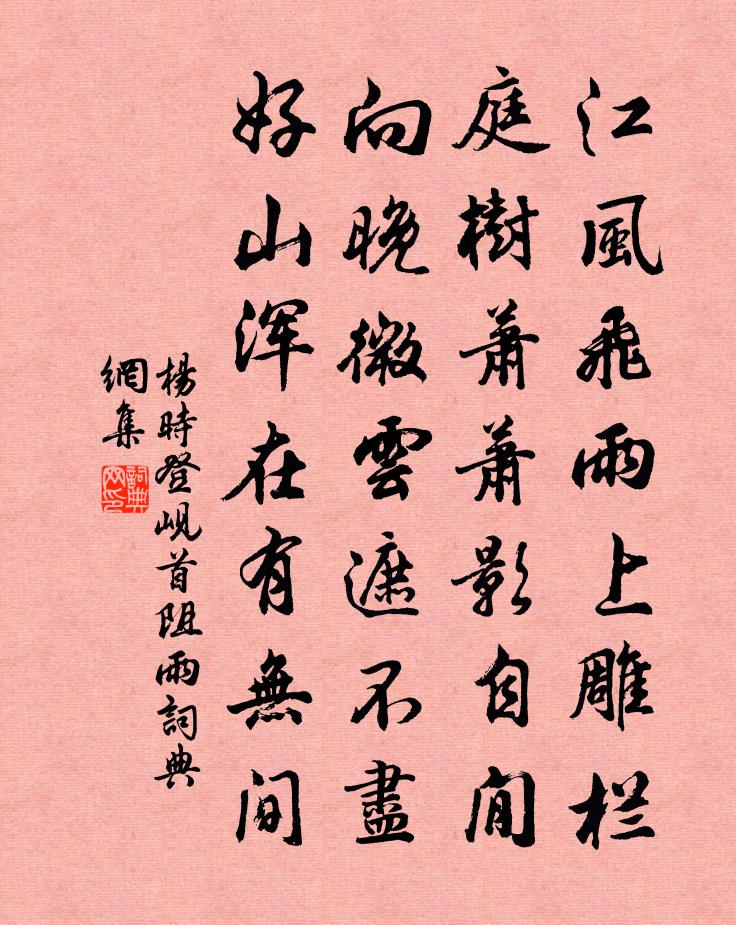 江風飛雨上雕栏
庭樹蕭蕭影自閒
向晚微雲遮不盡
好山浑在有無间
楊時登峴首阻雨詞典
網集
詞典
网印